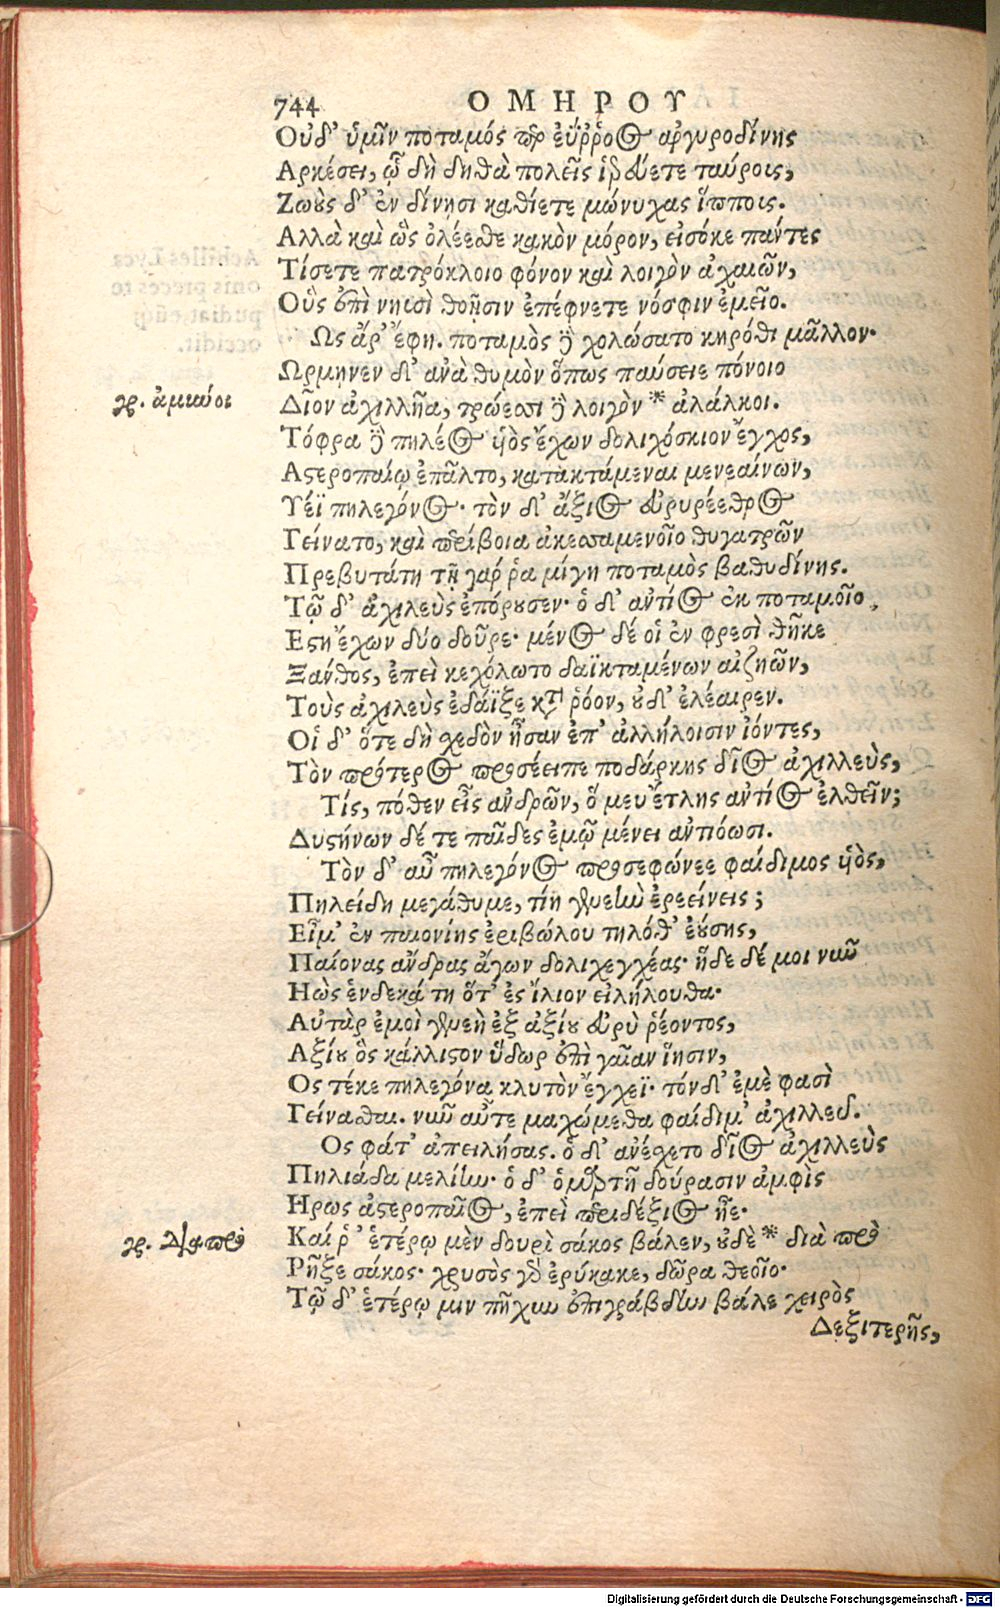 744 ΟΜΗΡΟΥ
Οὐδ' ὑμῖν ποταμός περ ἐΰῤῥοος ἀργυροδίνης
Αρκέσει, ᾧ δὴ δηθὰ πολεῖς ἱερεύετε ταύροις,
Ζωοὺς δ' ἐν δίνῃσι καθίετε μώνυχας ἵπποις.
Αλλὰ καὶ ὣς ὀλέεσθε κακὸν μόρον, εἰσόκε πάντες
Τίσετε πατρόκλοιο φόνον καὶ λοιγὸν ἀχαιῶν,
Οὓς ἐπὶ νηυσὶ θοῇσιν ἐπέφνετε νόσφιν ἐμεῖο.
Ως ἄρ' ἔφη. ποταμὸς δὲ χολώσατο κηρόθι μᾶλλον·
Ωρμηνεν δ' ἀνὰ θυμὸν ὅπως παύσειε πόνοιο
γρ. ἀμύναι
Δῖον ἀχιλλῆα, τρώεσσι δὲ λοιγὸν * ἀλάλκοι.
Τόφρα δὲ πηλέος υἱὸς ἔχων δολιχόσκιον ἔγχος,
Αστεροπαίῳ ἐπᾶλτο, κατακτάμεναι μενεαίνων,
Υέϊ πηλεγόνος· τὸν δ' ἄξιος εὐρυρέεθρος
Γείνατο, καὶ περίβοια ἀκεσσαμενοῖο θυγατρῶν
Πρεβυτάτη τῇ γάρ ῥα μίγη ποταμὸς βαθυδίνης.
Τῷ δ' ἀχιλεὺς ἐπόρουσεν· ὁ δ' ἀντίος ἐκ ποταμοῖο,
Εστη ἔχων δύο δοῦρε· μένος δέ οἱ ἐν φρεσὶ θῆκε
Ξάνθος, ἐπεὶ κεχόλωτο δαϊκταμένων αἰζηῶν,
Τοὺς ἀχιλεὺς ἐδάϊξε κατὰ ῥόον, οὐδ' ἐλέαιρεν.
Οἱ δ' ὅτε δὴ σχεδὸν ἦσαν ἐπ' ἀλλήλοισιν ἰόντες,
Τὸν πρότερος προσέειπε ποδάρκης δῖος ἀχιλλεὺς,
Τίς, πόθεν εἶς ἀνδρῶν, ὅ μευ ἔτλης ἀντίος ἐλθεῖν;
Δυστήνων δέ τε παῖδες ἐμῷ μένει ἀντιόωσι.
Τὸν δ' αὖ πηλεγόνος προσεφώνεε φαίδιμος υἱὸς,
Πηλείδη μεγάθυμε, τίη γενεὴν ἐρεείνεις;
Εἴμ' ἐν παιονίης ἐριβώλου τηλόθ' ἐούσης,
Παίονας ἄνδρας ἄγων δολιχεγχέας· ἥδε δέ μοι νῦν
Ηὼς ἑνδεκάτη ὅτ' ἐς ἴλιον εἰλήλουθα·
Αὐτὰρ ἐμοὶ γενεὴ ἐξ ἀξίου εὐρὺ ῥέοντος,
Αξίου ὃς κάλλιστον ὕδωρ ἐπὶ γαῖαν ἵησιν,
Ος τέκε πηλεγόνα κλυτὸν ἔγχεϊ· τόν δ' ἐμὲ φασὶ
Γείνασθαι. νῦν αὖτε μαχώμεθα φαίδιμ' ἀχιλλεῦ.
Ος φάτ' ἀπειλήσας. ὁ δ' ἀνέσχετο δῖος ἀχιλλεὺς
Πηλιάδα μελίην· ὁ δ' ὁμαρτῆ δούρασιν ἀμφὶς
Ηρως ἀστεροπαῖος, ἐπεὶ περιδέξιος ἦε·
γρ. διαπρὸ
Καί ῥ' ἑτέρῳ μὲν δουρὶ σάκος βάλεν, οὐδὲ * διὰ πρὸ
Ρῆξε σάκος· χρυσὸς γὰρ ἐρύκακε, δῶρα θεοῖο·
Τῷ δ' ἑτέρῳ μιν πῆχυν ἐπιγράβδην βάλε χειρὸς
Δεξιτερῆς,
Digitalisierung gefördert durch die Deutsche Forschungsgemeinschaft - DFG